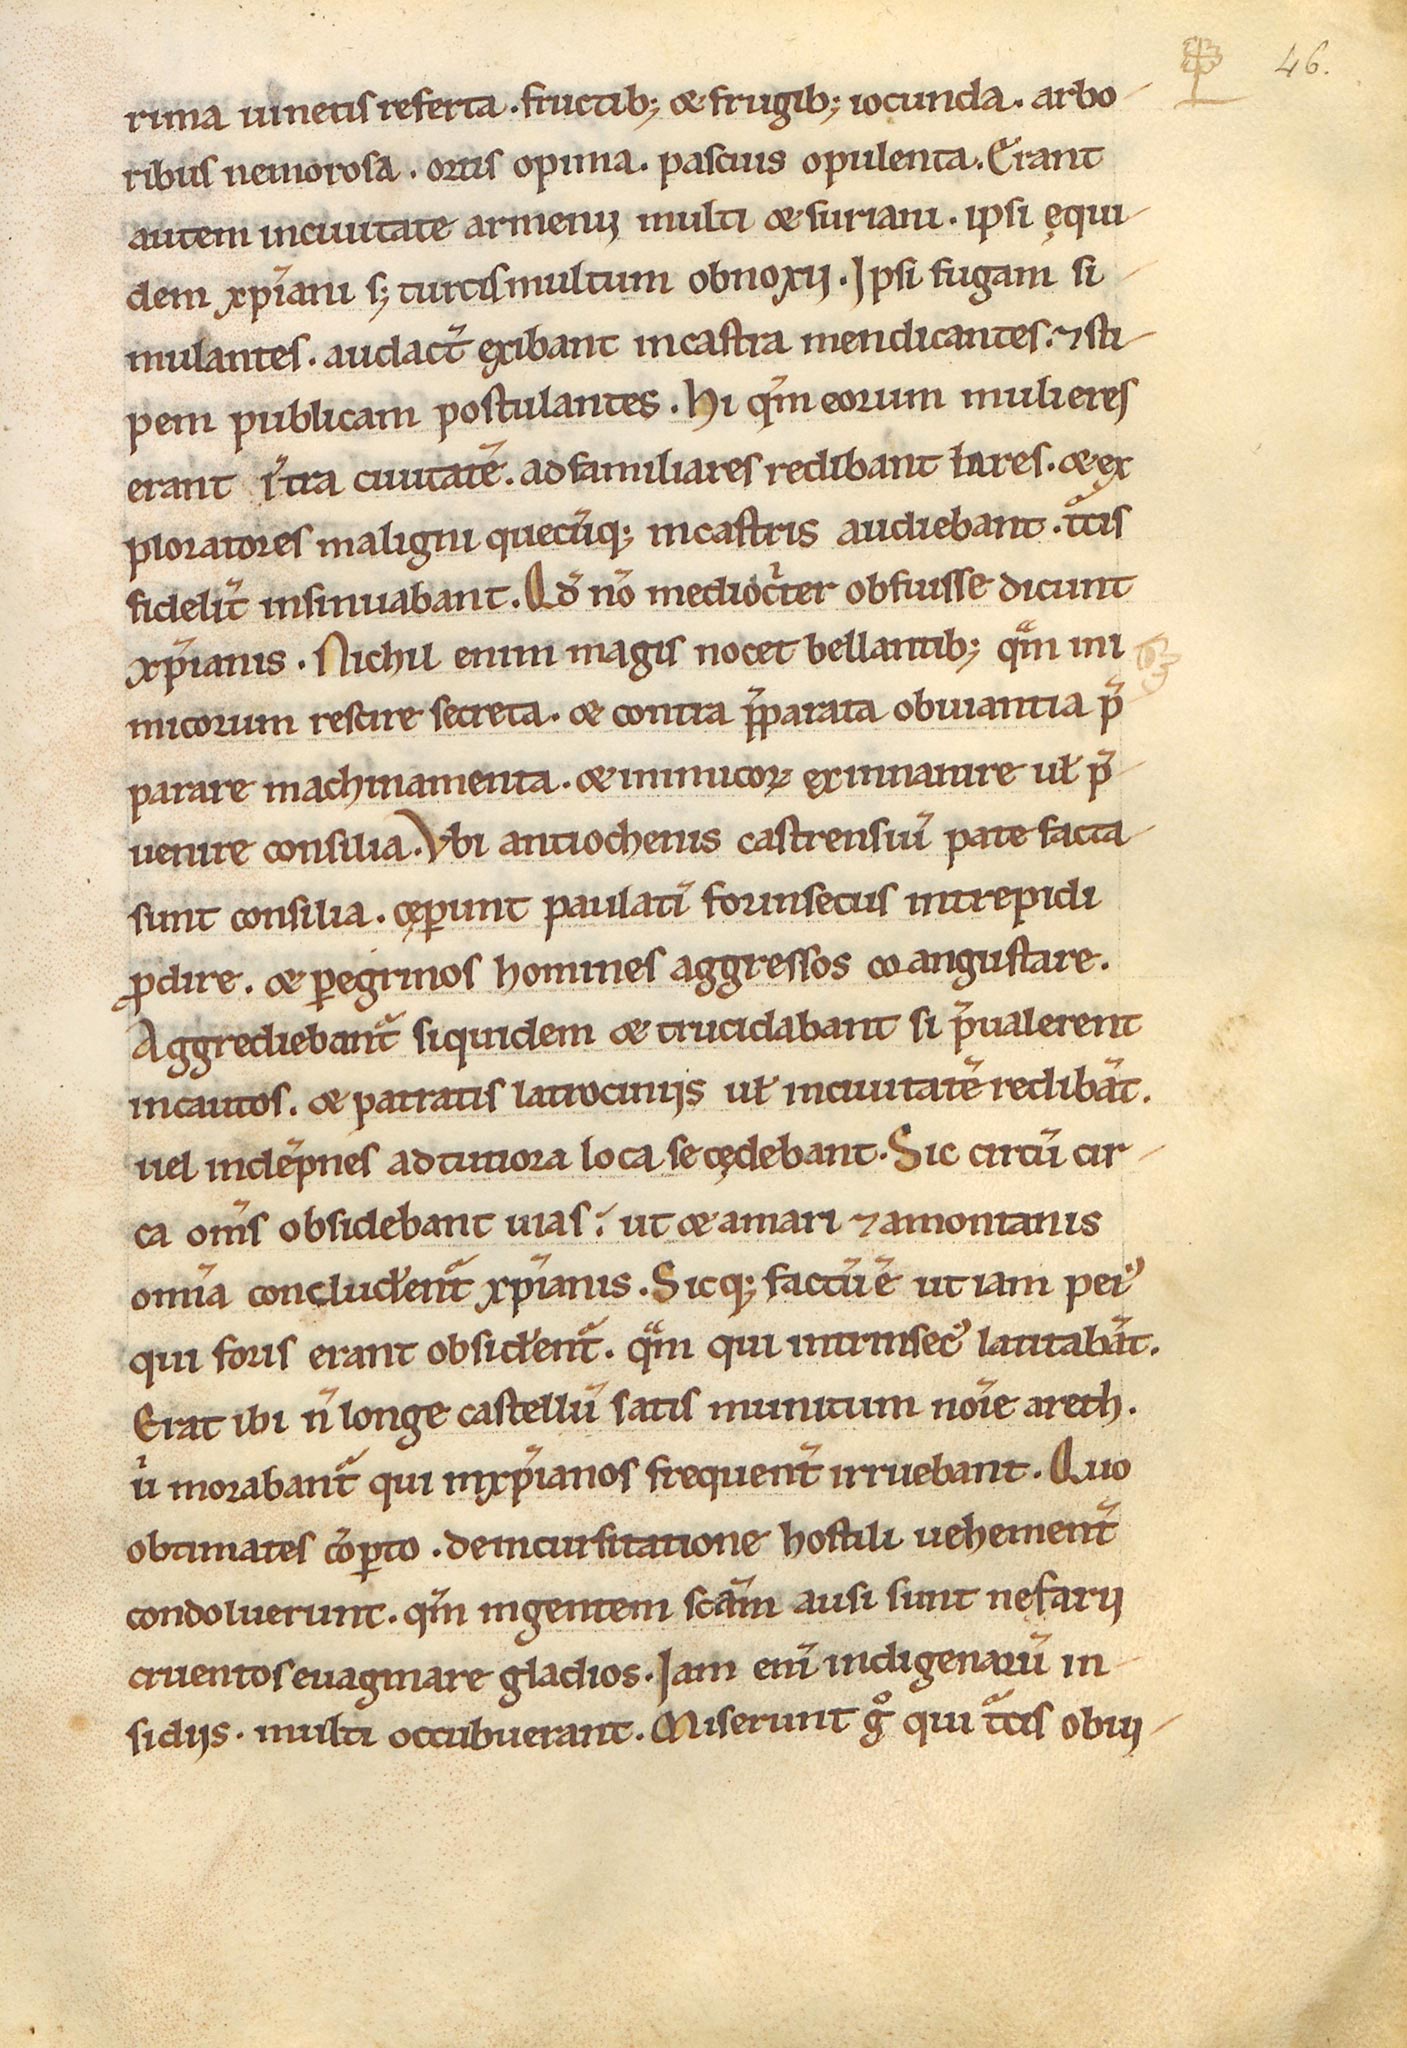 46.
rima uinetis referta. fructib; & frugib; iocunda. arbo
ribus nemorosa. ortis opima. pascuis opulenta. Erant
autem inciuitate armenij multi & suriani. ipsi ęqui
dem xp̄iani s; turcis multum obnoxij. Ipsi fugam si
mulantes. audact̄ exibant incastra mendicantes. ⁊ sti
pem publicam postulantes. Hi qm̄ eorum mulieres
erant ītra ciuitatē. adfamiliares redibant lares. & ex
ploratores maligni quecūq; incastris audiebant. tͨcis
fidelit̄ insinuabant. Qđ nō mediocͥter obfuisse dicunt
xp̄ianis. Nichil enim magis nocet bellantib; qͣm ini
micorum rescire secreta. & contra p̄parata obuiantia p̄
parare machinamenta. & inimicoꝝ exinanire uł p̄
uenire consilia. Vbi antiochenis castrensiū pate facta
sunt consilia. cęꝑunt paulatī forinsecus intrepidi
ꝓdire. & ꝑegrinos homines aggressos coangustare.
Aggrediebant᷑ siquidem & trucidabant si p̄ualerent
incautos. & patratis latrocinijs uł inciuitatē redibāt.
uel indēpnes adtutiora loca secędebant. Sic circū cir
ca om̄s obsidebant uias. ut & amari ⁊ amontanis
omīa concludent᷑ xp̄ianis. Sicq; factū ē ut iam peiꝰ
qui foris erant obsident᷑. qͣm qui intrinsecꝰ latitabāt.
Erat ibi n̄ longe castellū satis munitum noīe areth.
uͥ morabant᷑ qui inxp̄ianos frequent̄ irruebant. Quo
obtimates cōꝑto. deincursitatione hostili uehement̄
condoluerunt. qm̄ ingentem scām ausi sunt nefarii
cruentos euaginare gladios. Iam enī indigenarū in
sidijs. multi occubuerant. Miserunt gͦ qui tͨcis obuij